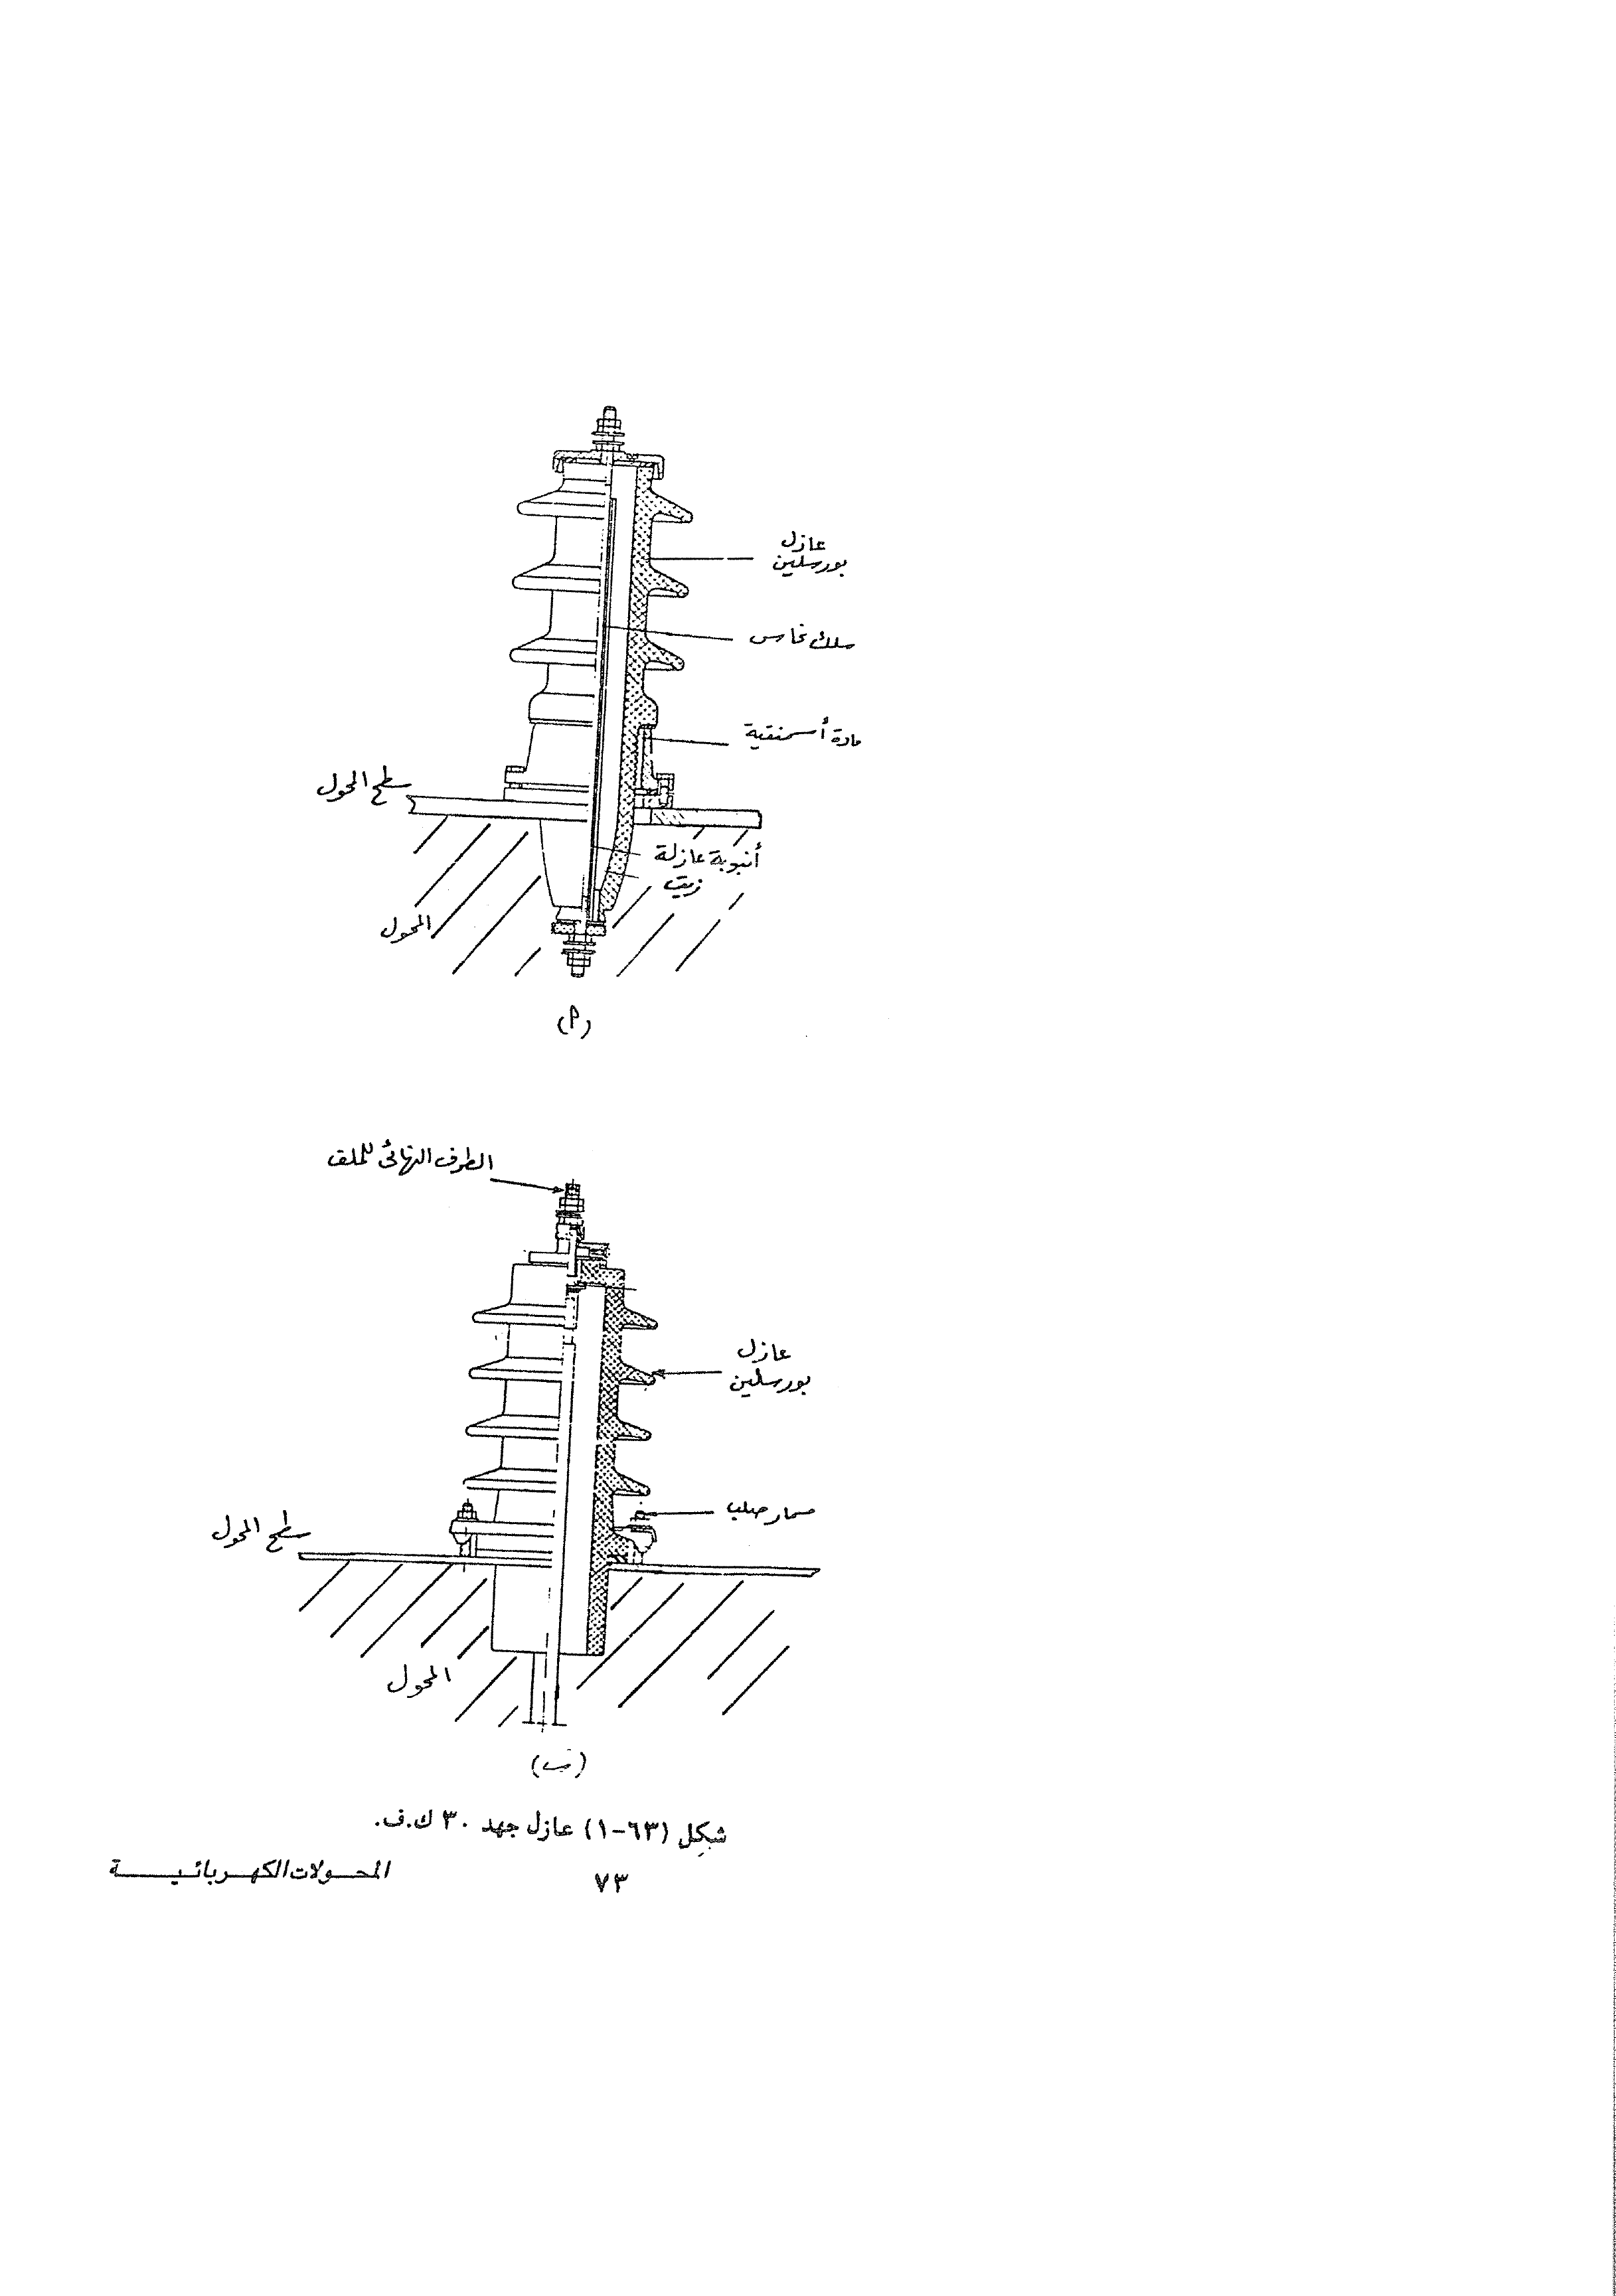 عازل
بورسلين
سلك نحاس
مادة أسمنتية
سطح المحول
أنبوبة عازلة
زيت
المحول
(أ)
الطرف النهائى للملف
عازل
بورسلين
مسمار صلب
سطح المحول
المحول
(ب)
شكل (٦٣-١) عازل جهد ٣٠ ك.ف.
المحولات الكهربائية
٧٣